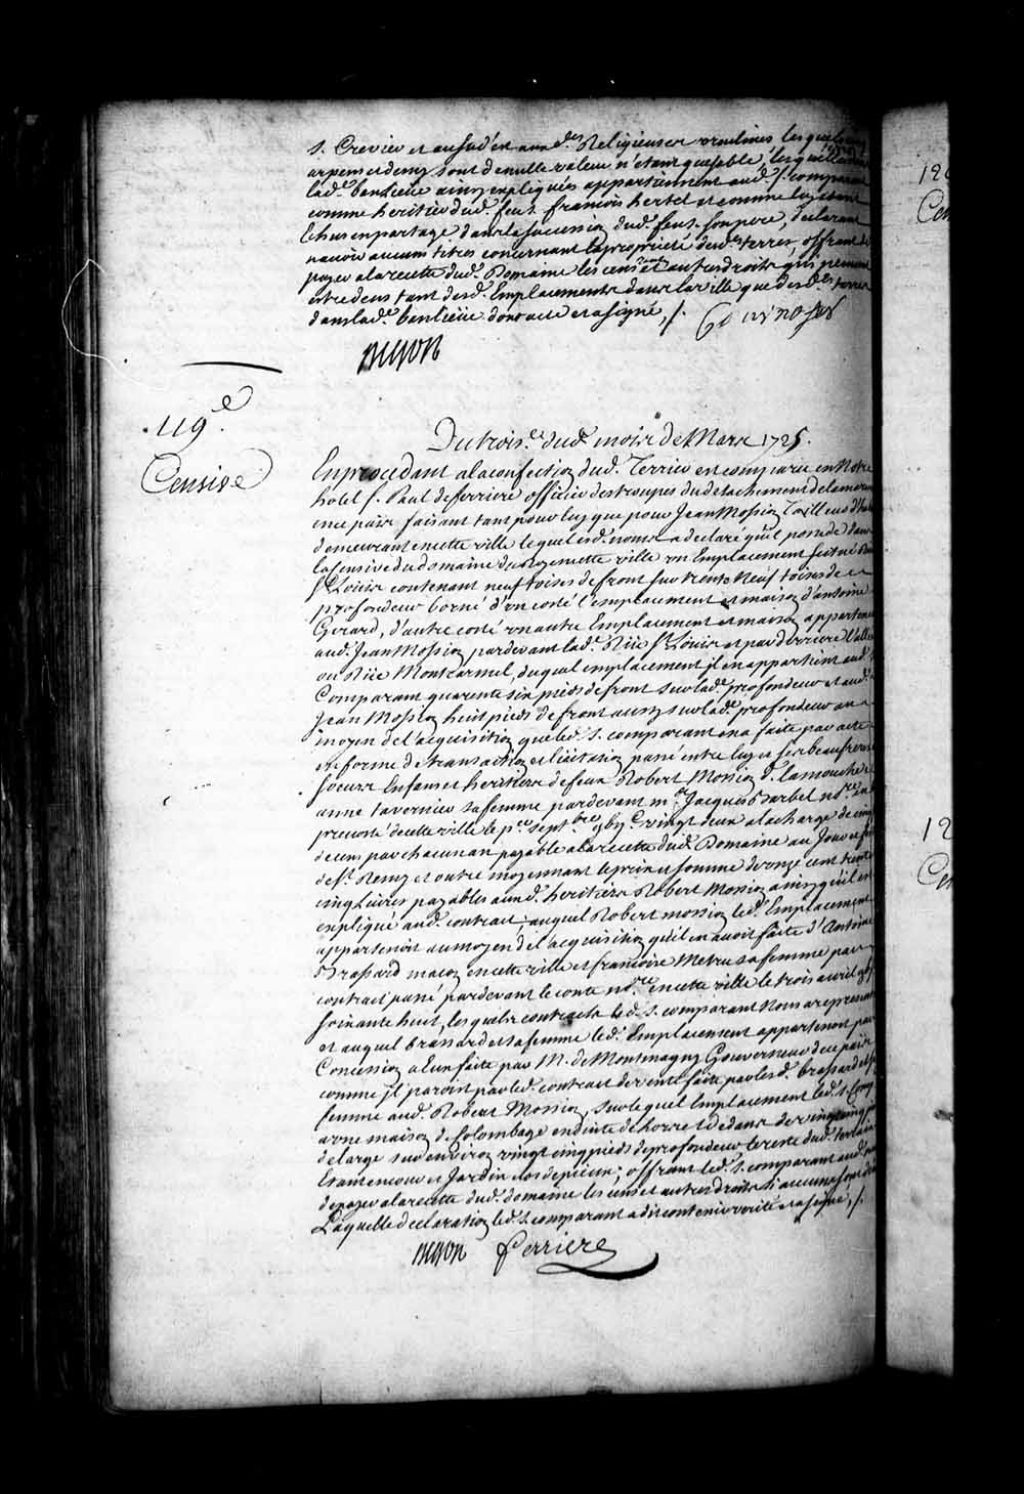 S. Crevier et au sud'est aux d.es Religieuses ursulines lesquels
arpens et demy sont de nulle valeur n'etant que sable, lesquelles
lad.e banlieüe ainsy expliquées appartiennent aud. S. comparant
comme heritier dud. feu S. françois hertel et comme luy etant
Echus en partage dans la succession dud. feu S. son pere, declarant
n'avoir aucuns titres concernant la propriété desd.es terres, offrant de
payer a la recette dud. Domaine les cens et autres droits qui peuvent
estre deus tant desd. Emplacements dans la ville que desd.es terres
dans lad.e banlieüe dont acte et a signé, /.
Begon
119.e
Censive
Du trois.e dud. mois de Mars 1725.
En procedant a la confection dud. Terrier est comparu en Notre
hotel S. Paul deferriere officier des troupes du detachement de la marine
en ce païs faisant tant pour luy que pour Jean Mossion Tailleur d'habits
demeurant en cette ville lequel esd. noms a declaré qu'il possede dans
la Censive du domaine du Roy en cette ville un Emplacement scitué Rüe
S.t Loüis contenant neuf toises de front sur trente Neuf toises de
profondeur borné d'un costé l'emplacement et maison d'antoine
Gerard, d'autre costé un autre Emplacement et maison appartenant
aud. Jean Mossion, pardevant lad.e Rüe S.t Loüis et par derriere l'allée
ou Rüe Montcarmel, duquel emplacement jl en appartient aud. S.
Comparant quarente six pieds de front sur lad.e profondeur et aud.
Jean Mossion huit pieds de front aussy sur lad.e profondeur au
moyen de l'acquisition que led. S. comparant en a faite par acte
en forme de transaction et licitation passé entre luy et ses beaufreres
soeurs Enfans et heritiers de feux Robert Mossion d. lamouche et
anne tavernier sa femme pardevant m.e Jacques Barbel no.re en la
prevosté de cette ville le p.er sept.bre gbij.C vingt deux a la charge de cinq
de cens par chacun an payable a la recette dud. Domaine au Jour et feste
de S.t Remy et outre moyennant le prix et somme de onze cent trente
cinq Livres payables aux d. heritiers Robert Mossion ainsy qu'il est
expliqué aud. contract, auquel Robert mossion led. Emplacement
appartenoit au moyen de l'acquisition qu'il en avoit faite d'Antoine
Brassard macon en cette ville et francoise Metru sa femme par
contract passé pardevant le conte no.re en cette ville le trois avril
soixante huit, lesquels contracts led. S. comparant Nous a representé
et auquel brassard et sa femme led. Emplacement appartenoit par
Concession a lui faite par M. de Montmagny Gouverneur de ce païs
comme jl paroist par led. contract de vente faite par lesd. brassard et sa
femme aud. Robert Mossion, sur lequel Emplacement led. S. Comp.
a une maison de Colombage enduite dehors et dedans de vingt cinq pieds
de large sur environ vingt cinq pieds de profondeur le reste dud. terrain
Etant en cour et Jardin clos de pieux; offrant led. S. comparant aud. nom
de payer a la recette dud. domaine les cens et autres droits si aucuns sont deus
Laquelle declaration led. S. comparant a dit contenir verité et a signé, /.
Begon ferriere
Cen